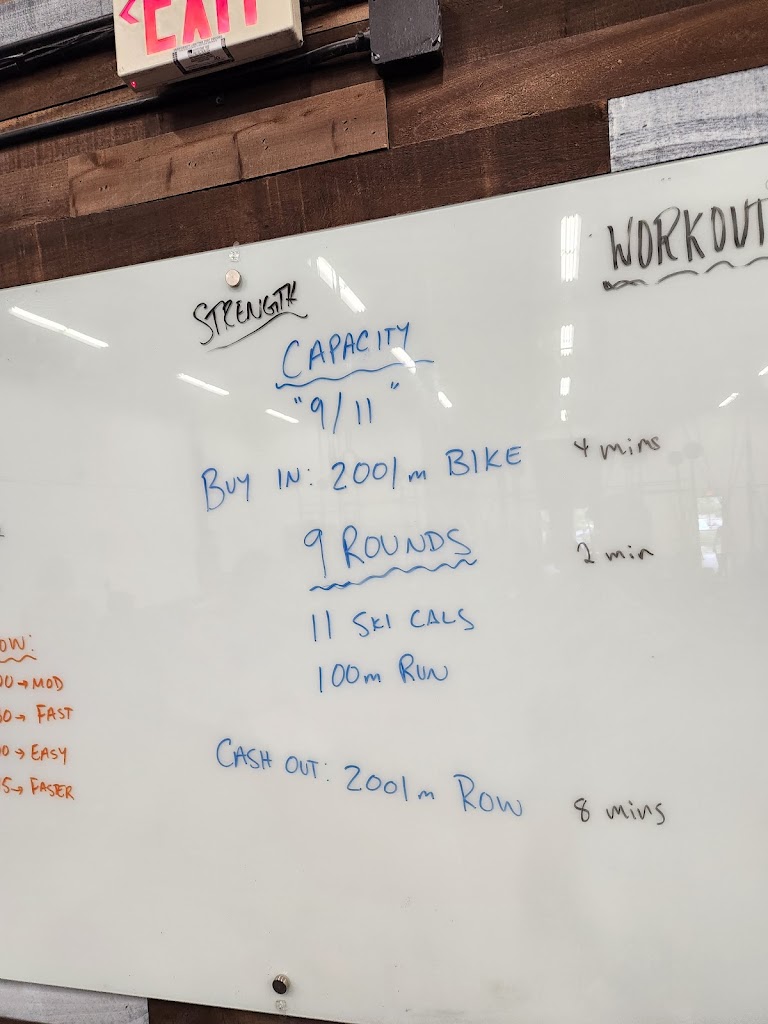 EXIT
STRENGTH
WORKOUT
CAPACITY
"9/11"
BUY IN: 2001m BIKE 4 mins
9 ROUNDS 2 min
11 SKI CALS
100m RUN
CASH OUT: 2001m ROW 8 mins
OW:
00→MOD
0→ FAST
0→ EASY
5→ FASTER